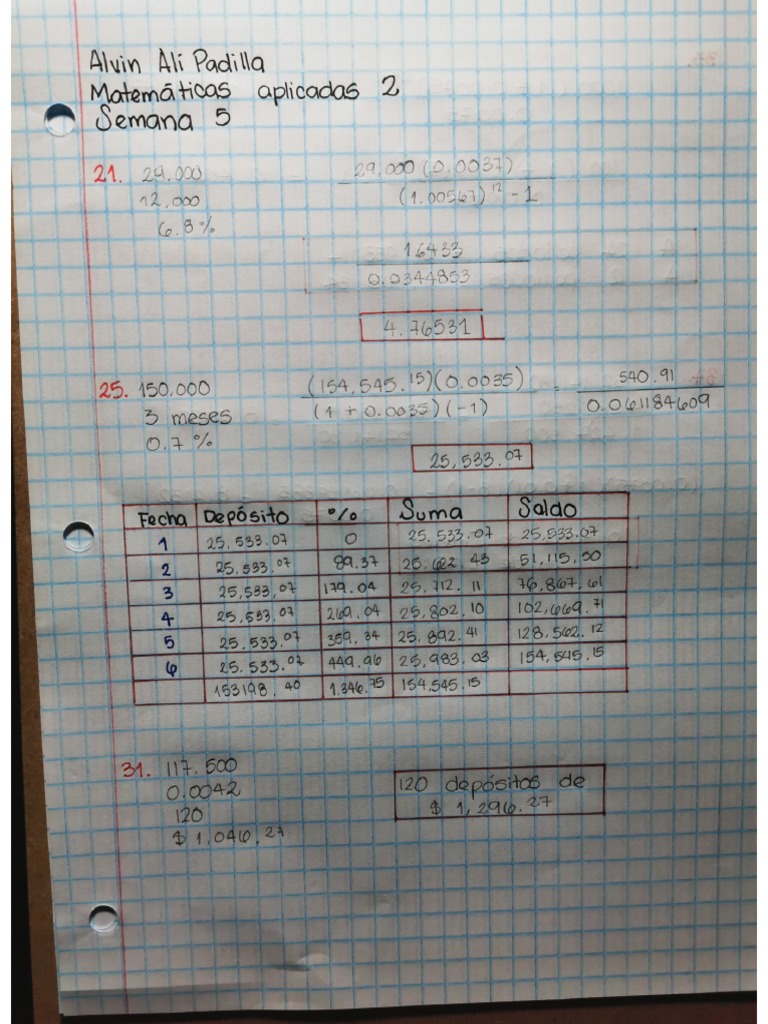 Alvin Ali Padilla
Matemáticas aplicadas 2
Semana 5
21. 29,000
12,000
6.8%
29,000 (0.0037)
(1.00567)¹² - 1
16433
0.0344853
4.76531
25. 150,000
3 meses
0.7%
(154,545.15)(0.0035)
(1 + 0.0035)(-1)
=
540.91
0.061184609
25,533.07
Fecha Depósito % Suma Saldo
1 25,533.07 0 25,533.07 25,533.07
2 25,533.07 89.37 25.622.43 51,115.50
3 25,533,07 179.04 25,712.11 76,867.61
4 25,533.07 269.04 25,802.10 102,669.71
5 25.533.07 359.34 25.892.41 128,562.12
6 25.533.07 449.96 25,983.03 154,545.15
153198.40 1,346.75 154,545.15
31. 117,500
0.0042
120
$ 1,046.27
120 depósitos de
$ 1,296.27